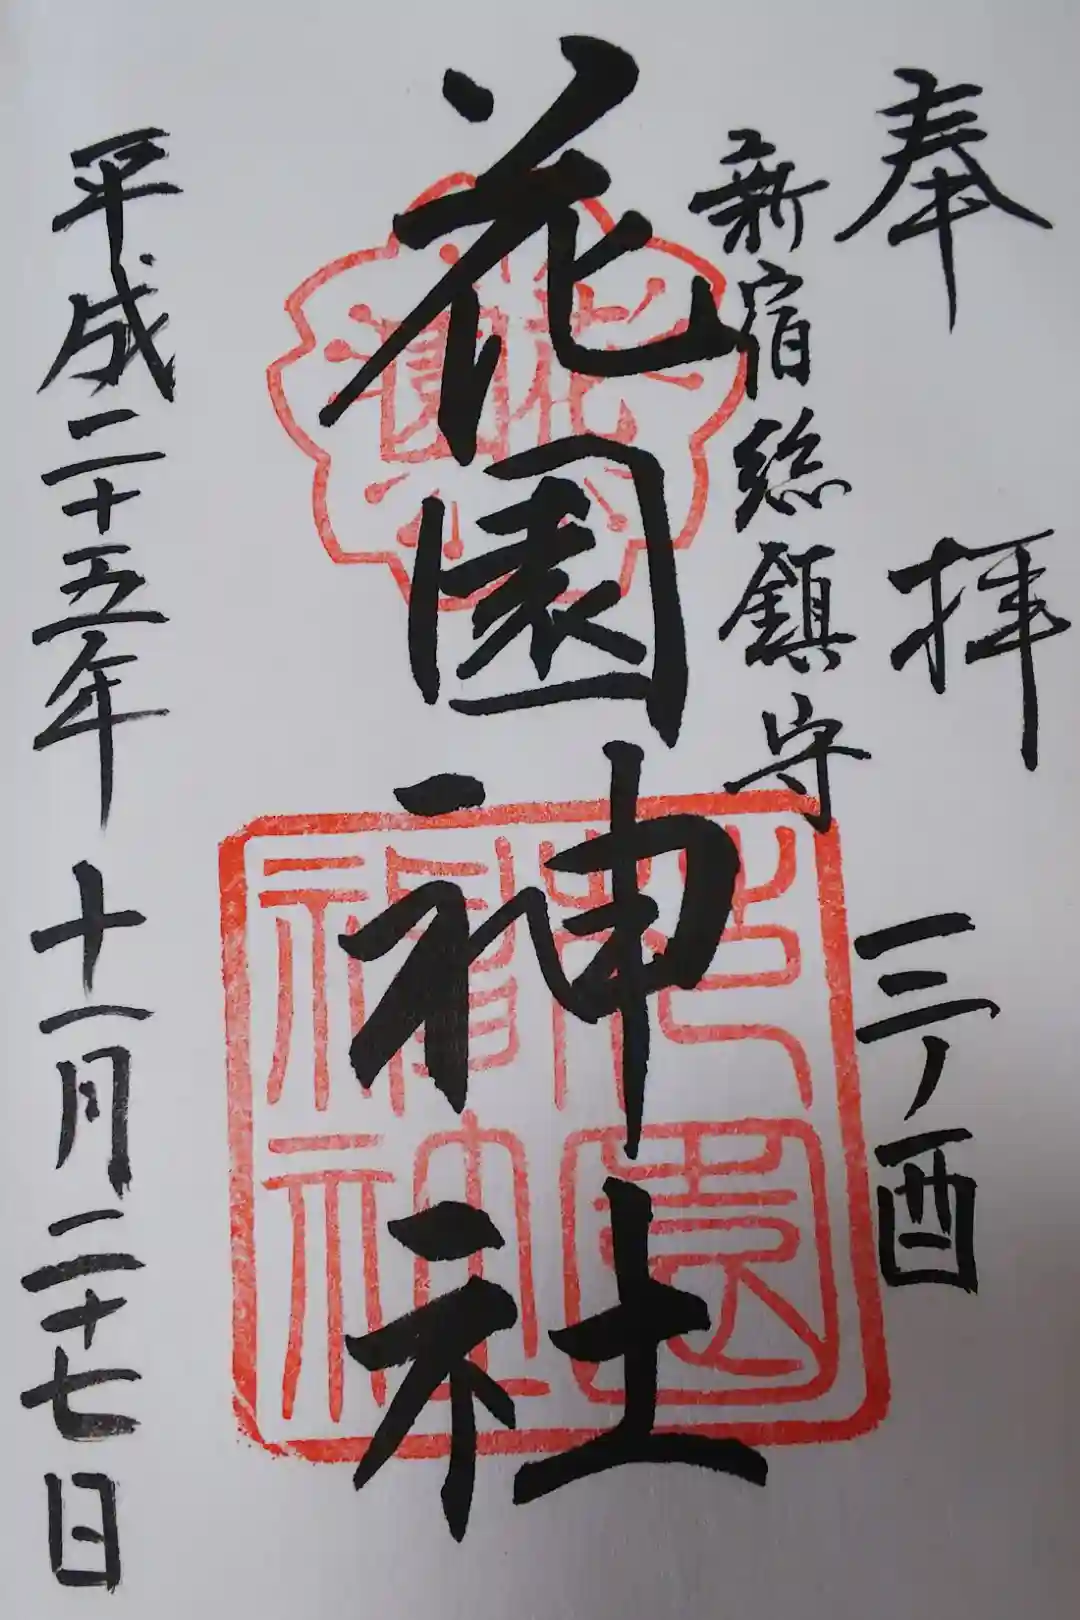 奉拝 三ノ酉
新宿総鎮守
花園神社
花園
花園神社
平成二十五年十一月二十七日